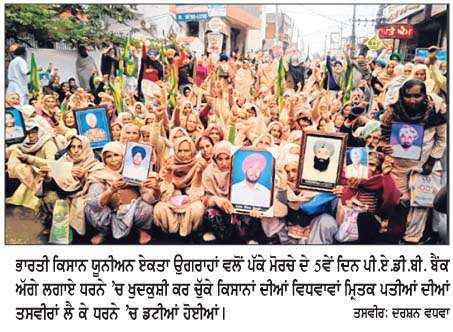 ਭਾਰਤੀ ਕਿਸਾਨ ਯੂਨੀਅਨ ਏਕਤਾ ਉਗਰਾਹਾਂ ਵਲੋਂ ਪੱਕੇ ਮੋਰਚੇ ਦੇ 5ਵੇਂ ਦਿਨ ਪੀ.ਏ.ਡੀ.ਬੀ. ਬੈਂਕ
ਅੱਗੇ ਲਗਾਏ ਧਰਨੇ 'ਚ ਖੁਦਕੁਸ਼ੀ ਕਰ ਚੁੱਕੇ ਕਿਸਾਨਾਂ ਦੀਆਂ ਵਿਧਵਾਵਾਂ ਮ੍ਰਿਤਕ ਪਤੀਆਂ ਦੀਆਂ
ਤਸਵੀਰਾਂ ਲੈ ਕੇ ਧਰਨੇ 'ਚ ਡਟੀਆਂ ਹੋਈਆਂ। ਤਸਵੀਰ: ਦਰਸ਼ਨ ਵਧਵਾ